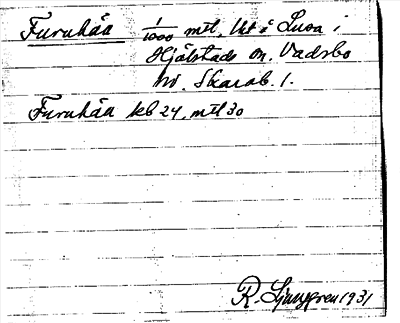 Furuhåa 1/1000 mtl, Ut å Luva i
Hjälstads sn. Vadsbo
hd. Skarab. l.
Furuhåa kb 24, mtl 30
R. Ljunggren 1931